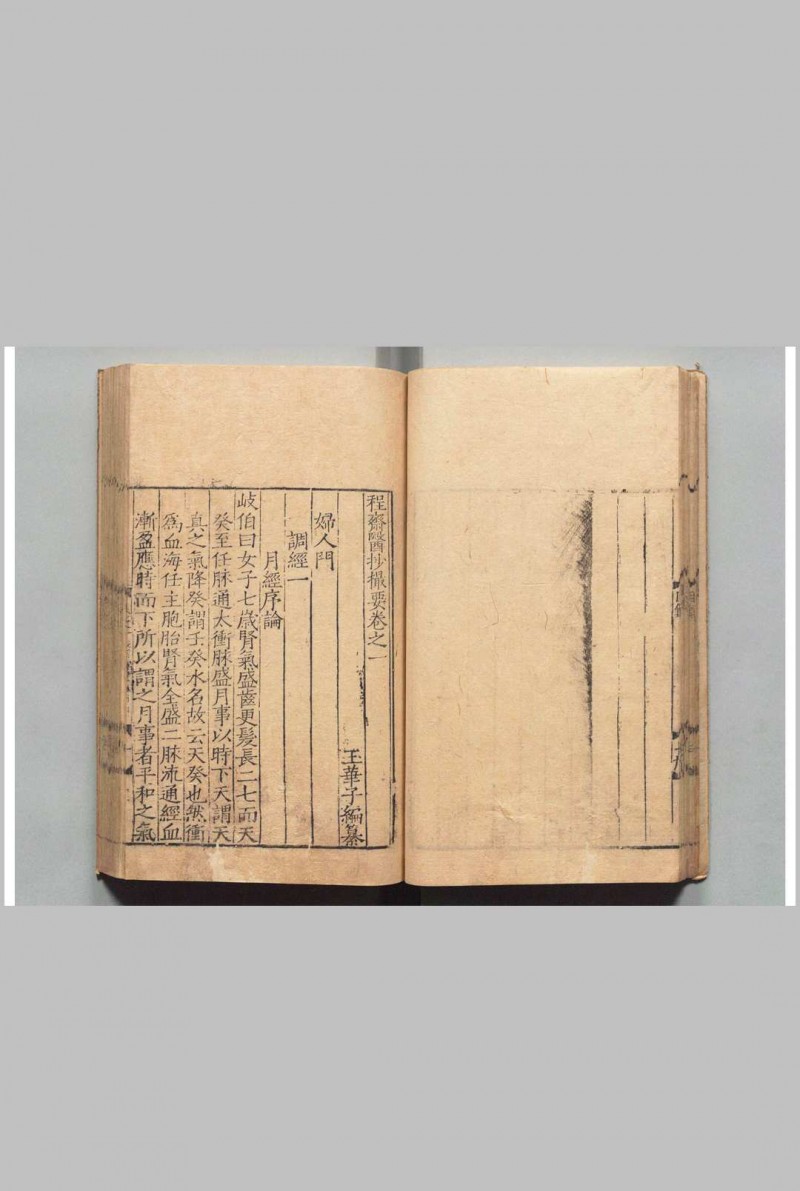 程齋醫抄撮要卷之一
玉華子編纂
婦人門
調經一
月經序論
岐伯曰女子七歲腎氣盛齒更髮長二七而天
癸至任脉通太衝脉盛月事以時下天謂天
真之氣降癸謂壬癸水名故云天癸也然衝
爲血海任主胞胎腎氣全盛二脉流通經血
漸盈應時而下所以謂之月事者平和之氣